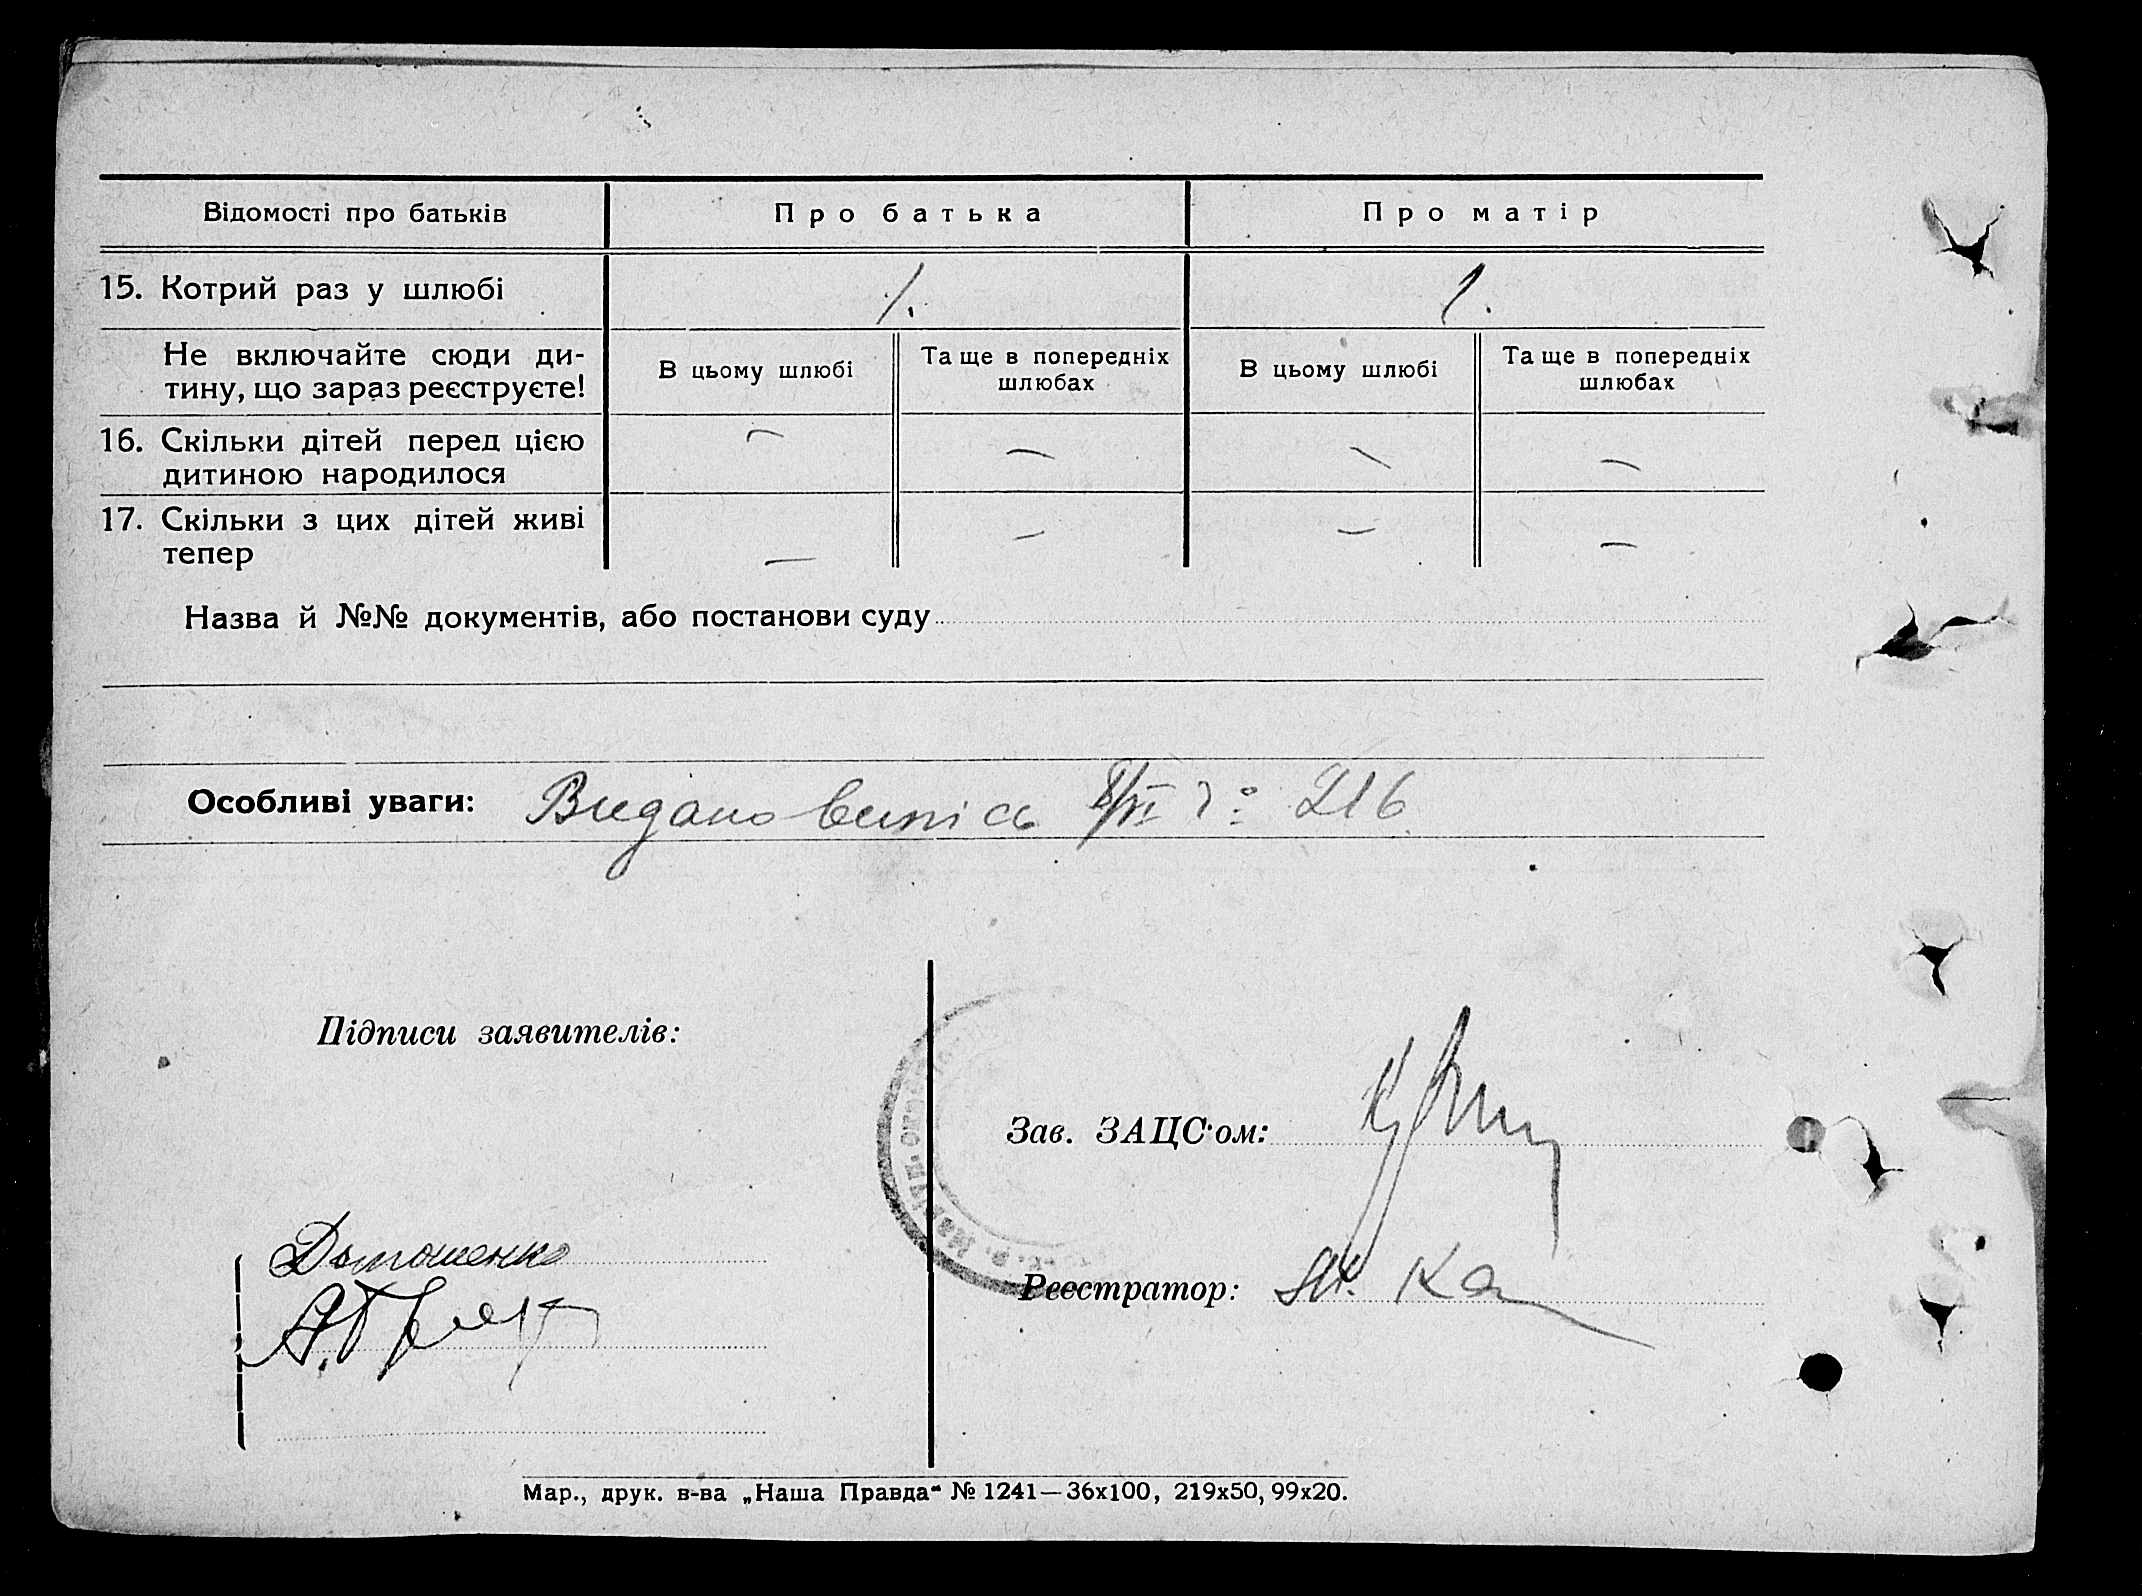 Відомості про батьків Про батька Про матір
15. Котрий раз у шлюбі 1. 1.
Не включайте сюди ди-
тину, що зараз реєструєте!
В цьому шлюбі Та ще в попередніх шлюбах В цьому шлюбі Та ще в попередніх шлюбах
16. Скільки дітей перед цією
дитиною народилося — — — —
17. Скільки з цих дітей живі
тепер — — — —
Назва й №№ документів, або постанови суду
Особливі уваги: Видано випісь 216
Підписи заявителів:
Зав. ЗАЦС'ом:
Реєстратор:
Мар., друк. в-ва „Наша Правда" № 1241—36х100, 219х50, 99х20.